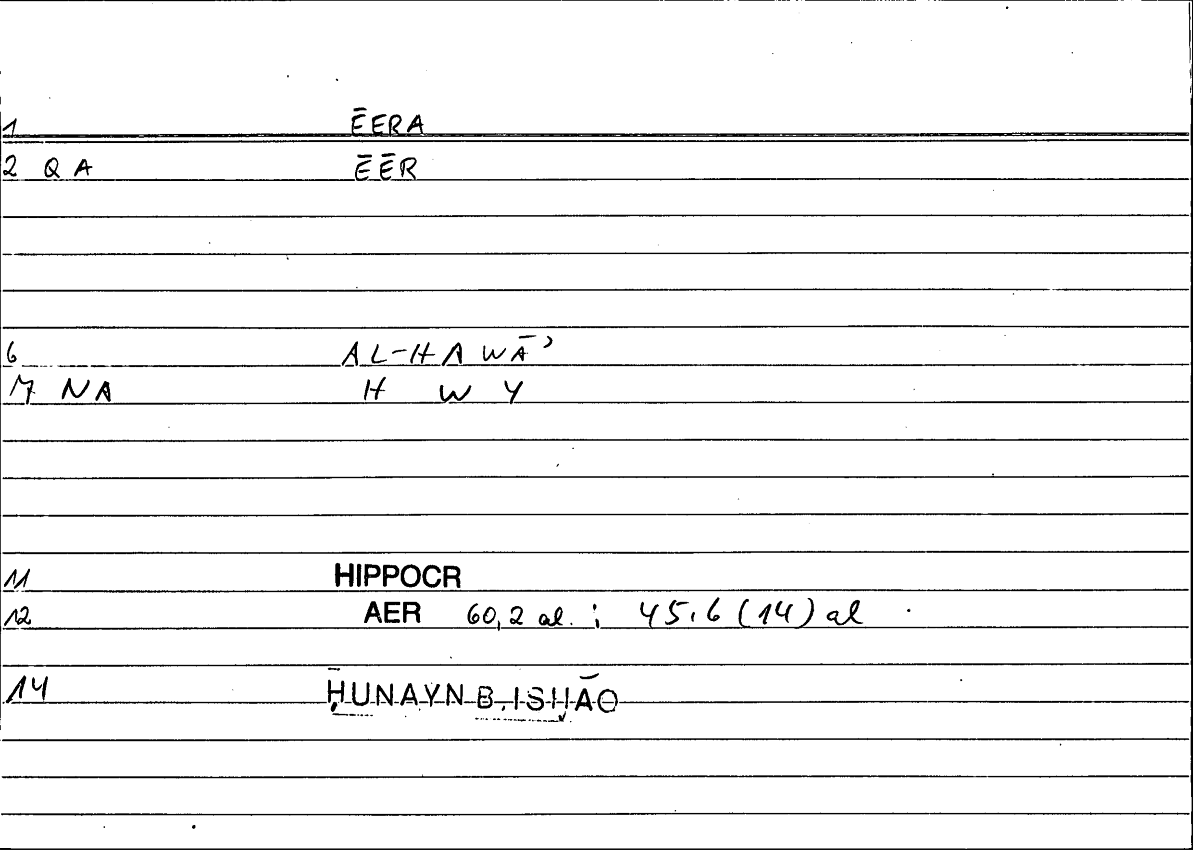 1 ĒERA
2 Q A ĒĒR
6 AL-HAWĀʾ
7 NA H W Y
11 HIPPOCR
12 AER 60,2 al. ; 45,6 (14) al
14 ḤUNAYN B. ISḤĀQ